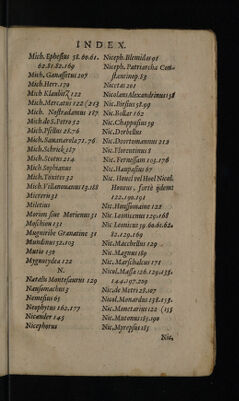 INDEX.
Mich. Ephesius 58.60.61.
62.81.82.169
Mich. Ganassetus 207
Mich. Herr. 170
Mich Klanbitz 122
Mich. Mercatus 122 (213
Mich. Nostradamus 187
Mich de S. Petro 52
Mich. Psellus 28.76
Mich. Sauanarola 71.76.
Mich. Schrick 187
Mich. Scotus 214
Mich Sophianus
Mich. Toxites 52
Mich. Villanouanus 19.188
Micteris 31
Miletius
Morion siue Morienus 51
Moschion 131
Muguirille Granatine 31
Mundinus 32.103
Musitio 139
Mygnotydea 122
N.
Natalis Montesaurus 129
Nausomachus 5
Nemesius 65
Neophytus 162.177
Nicander 145
Nicephorus
Niceph. Blemidas 91
Niceph. Patriarcha Con-
stantinop. 83
Nicetas 201
Nicolaus Alexandrinus 158
Nic. Biesius 58.99
Nic. Bollar 162
Nic. Chappusius 59
Nic. Dorbellus
Nic. Doortomannus 212
Nic. Florentinus 8
Nic. Fernussam 105.176
Nic. Haupasius 67
Nic. Heuel vel Heel Nicol.
Honeus, fortè ijdem
122.190.191
Nic. Houssionaine 122
Nic. Leonicenus 129.168
Nic. Leonicus 59.60.61.62.
82.129.169
Nic. Macchellus 129
Nic. Magnus 189
Nic. Marschalcus 171
Nicol. Massa 126.129.135.
144.197.209
Nic. de Metri 28.107
Nicol. Monardus 138.155.
Nic. Monetarius 122 (155
Nic. Mutonus 185.195
Nic. Myrepsus 185
Nic.